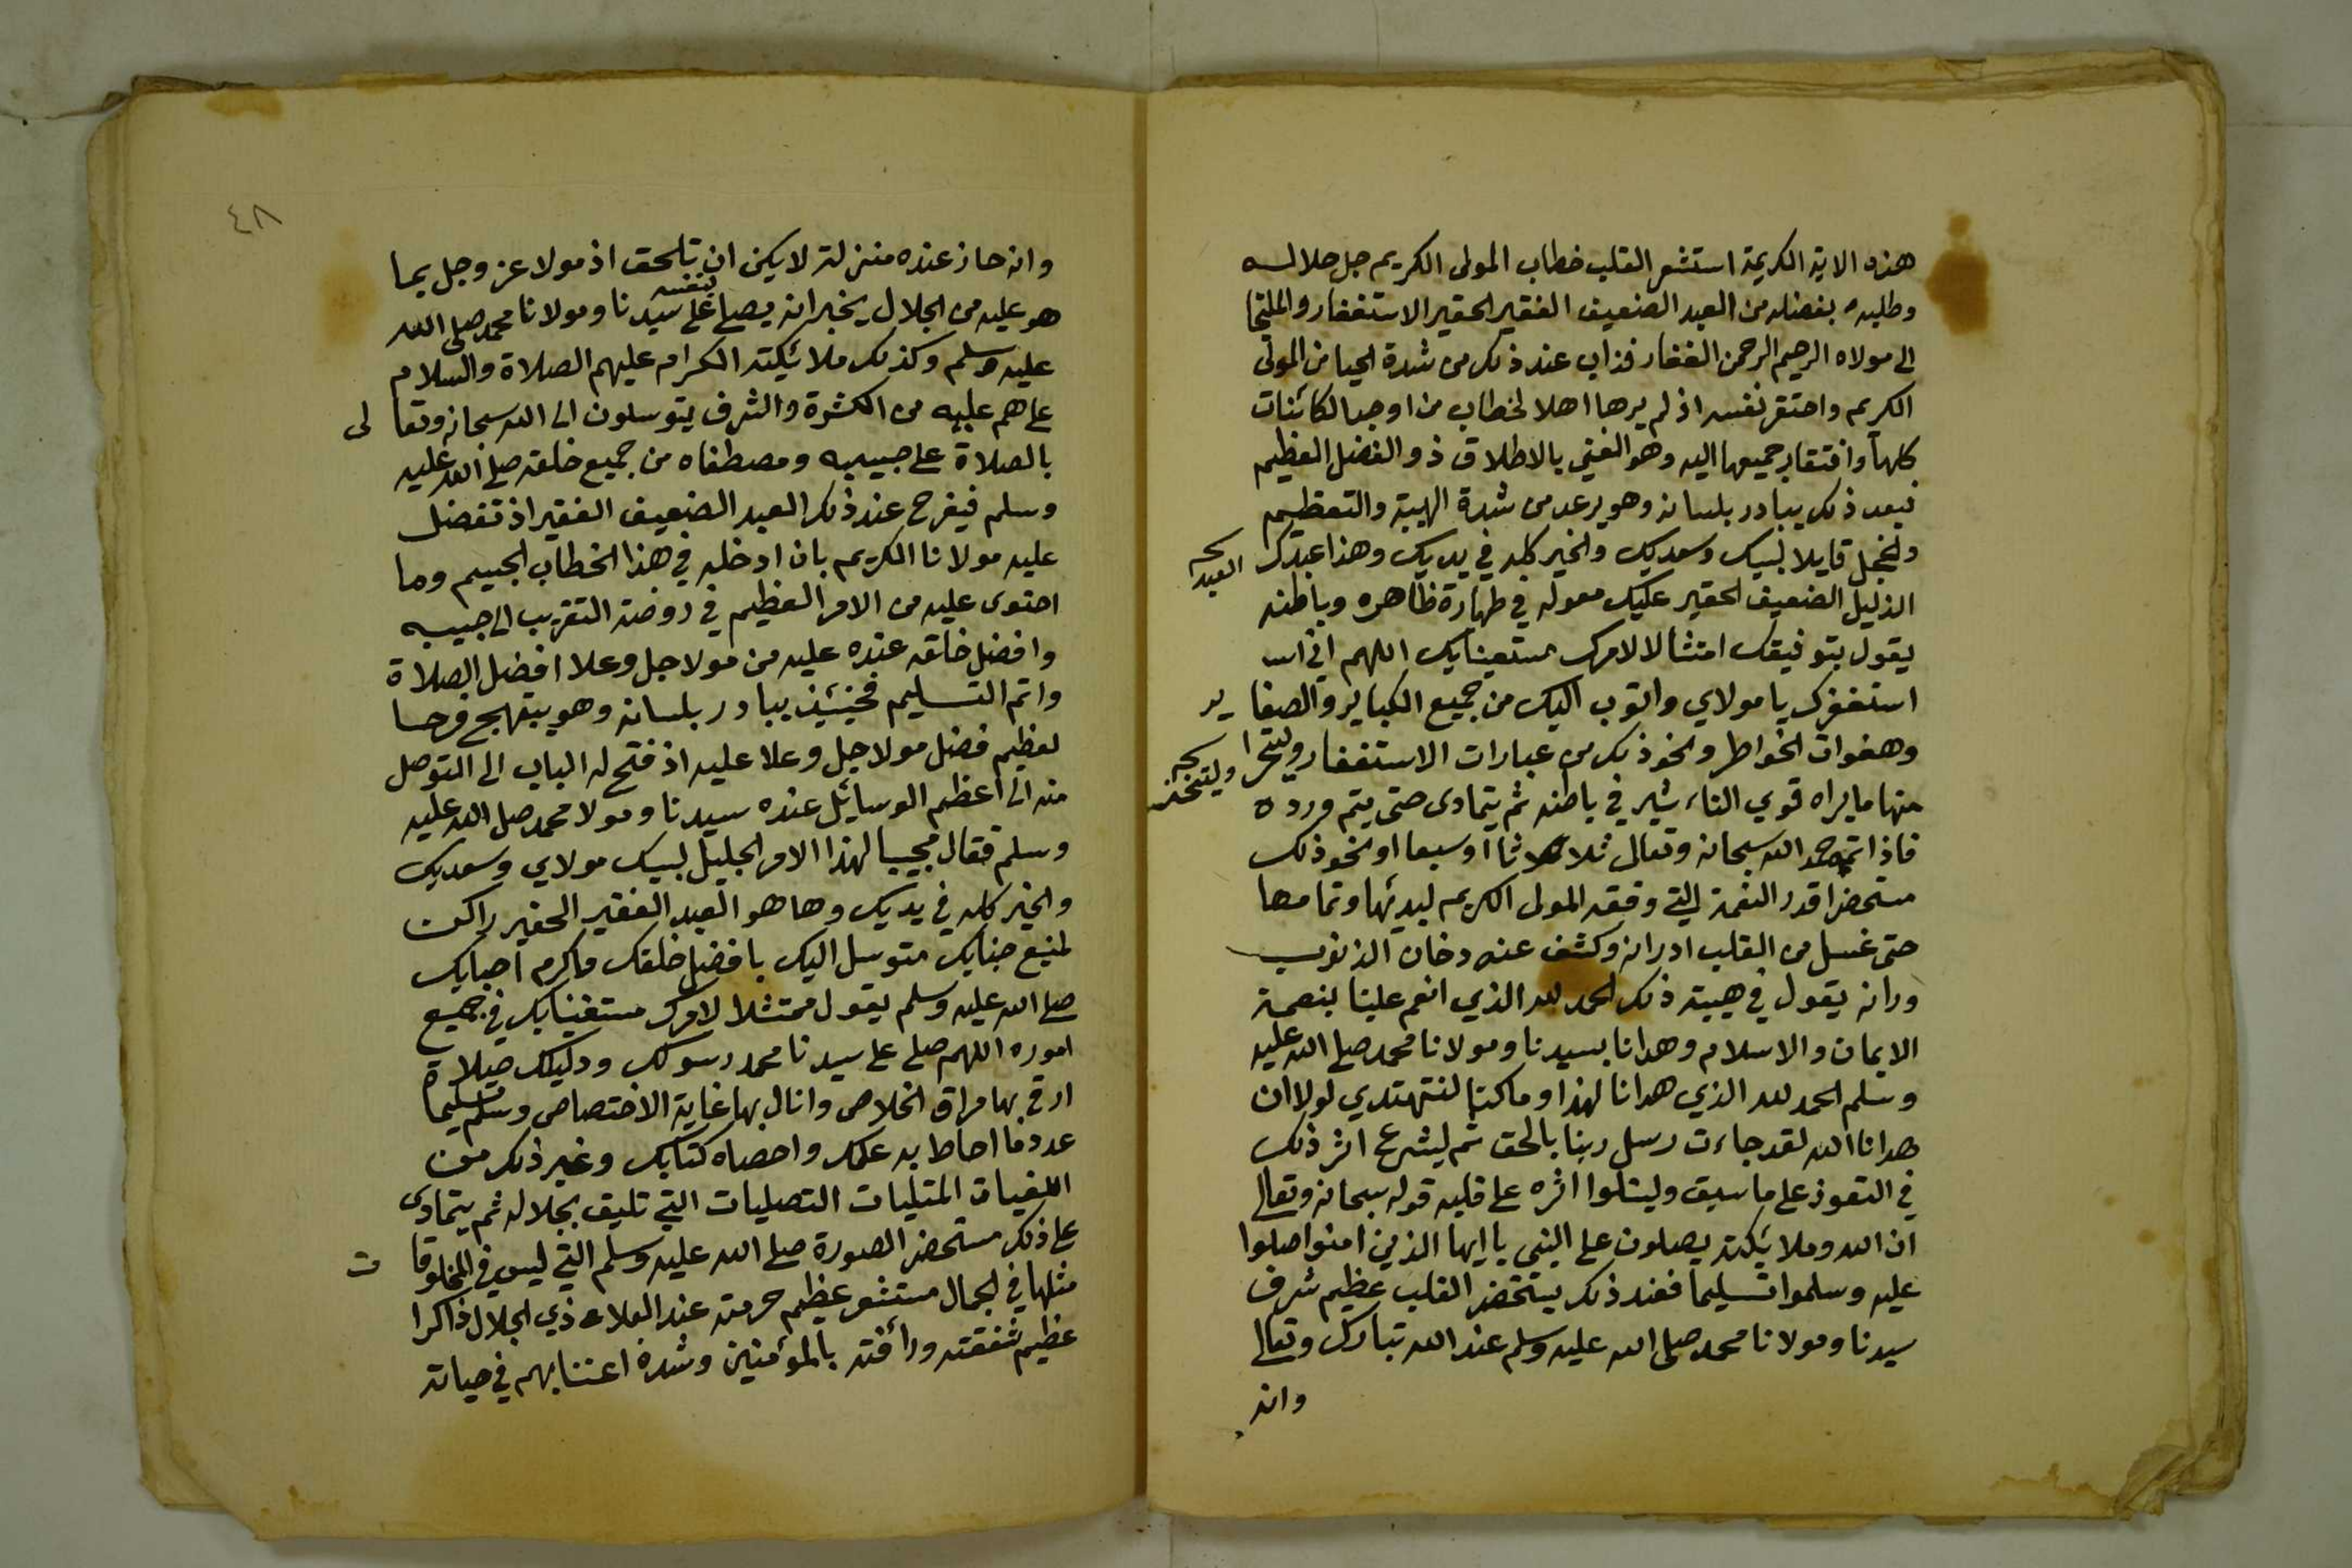 هذه الاية الكريمة استشعر القلب خطاب المولى الكريم جل جلاله
وطلبه بفضله من العبد الضعيف الفقير الحقير الاستغفار والملتجا
الى مولاه الرحيم الرحمن الغفار فذاب عند ذلك من شدة الحيا من المولى
الكريم واحتقر نفسه اذ لم يرها اهلا لخطاب من اوجد الكائنات
كلها وافتقار جميعها اليه وهو الغني بالاطلاق ذو الفضل العظيم
فبعد ذلك يبادر بلسانه وهو يرعد من شدة الهيبة والتعظيم
والخجل قايلا لبيك وسعديك والخير كله في يديك وهذا عبدك
العبد
الذليل الضعيف الحقير عليك معوله في طهارة ظاهره وباطنه
يقول بتوفيقك امتثالا لامرك مستعينا بك اللهم اني
استغفرك يا مولاي واتوب اليك من جميع الكباير والصغاير
وهفوات الخواطر ونحو ذلك من عبارات الاستغفار
منها ما يراه قوي التاءثير في باطنه ثم يتمادى حتى يتم ورده
فاذا اتمه حمد الله سبحانه وتعالى ثلاثا اوسبعا اونحو ذلك
مستحضرا قدر النعمة التي وفقه المولى الكريم لبدئها وتمامها
حتى غسل من القلب ادرانه وكشف عنه دخان الذنوب
ورانه يقول في هيبته ذلك الحمد لله الذي انعم علينا بنعمة
الايمان والاسلام وهدانا بسيدنا ومولانا محمد صلى الله عليه
وسلم الحمد لله الذي هدانا لهذا وما كنا لنتهتدي لولا ان
هدانا الله لقد جاءت رسل ربنا بالحق ثم ليشرع اثر ذلك
في التعوذ على ما سبق وليتلوا اثره على قلبه قوله سبحانه وتعالى
ان الله وملائكته يصلون على النبي يا ايها الذين امنوا صلوا
عليه وسلموا تسليما فعند ذلك يستحضر القلب عظيم شرف
سيدنا ومولانا محمد صلى الله عليه وسلم عند الله تبارك وتعالى
وانه
٤٨
وانه حاز عنده منزلة لا يكن ان تلحق اذ مولا عز وجل بما
هو عليه من الجلال يخبر انه يصلي بنفسه على سيدنا ومولانا محمد صلى الله
عليه وسلم وكذلك ملائكته الكرام عليهم الصلاة والسلام
على هم عليه من الكثرة والشرف يتوسلون الى الله سبحانه وتعالى
بالصلاة على حبيبه ومصطفاه من جميع خلقه صلى الله عليه
وسلم فيفرح عند ذلك العبد الضعيف الفقير اذ تفضل
عليه مولانا الكريم بان ادخله في هذا الخطاب الجسيم وما
احتوى عليه من الامر العظيم في روضة التقريب الى حبيبه
وافضل خلقه عنده عليه من مولا جل وعلا افضل الصلاة
واتم التسليم فحينئذ يبادر بلسانه وهو يبتهج فرحا
لعظيم فضل مولا جل وعلا عليه اذ فتح له الباب الى التوصل
منه الى اعظم الوسائل عنده سيدنا ومولا محمد صلى الله عليه
وسلم فقال مجيبا لهذا الامر الجليل لبيك مولاي وسعديك
والخير كله في يديك وها هو العبد الفقير الحقير راكن
لمنيع جنابك متوسل اليك بافضل خلقك واكرم احبابك
صلى الله عليه وسلم يقول ممتثلا لامرك مستغيثا بك في جميع
اموره اللهم صلى على سيدنا محمد رسولك ودليلك صلاة
ارقى بها مراق الخلاص وانال بها غاية الاختصاص وسلم تسليما
عدد ما احاط به علمك واحصاه كتابك وغير ذلك من
التصليات التي تليق بجلاله ثم يتمادى
على ذلك مستحضر الصورة صلى الله عليه وسلم التي ليس في المخلوقات
مثلها في الجمال مستشعر عظيم حرمته عند الملاء ذي الجلال ذاكرا
عظيم شفقته ورأفته بالمؤمنين وشدة اعتنا بهم في حياته